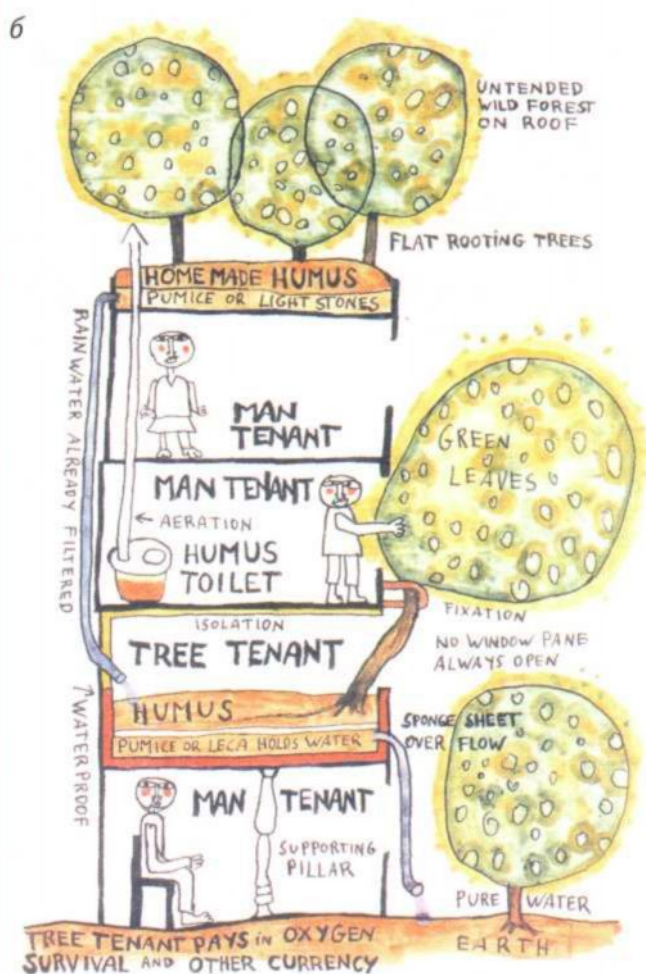 б
UNTENDED
WILD FOREST
ON ROOF
FLAT ROOTING TREES
HOME MADE HUMUS
PUMICE OR LIGHT STONES
RAINWATER ALREADY FILTERED
MAN
TENANT
GREEN
LEAVES
MAN TENANT
← AERATION
HUMUS
TOILET
FIXATION
ISOLATION
NO WINDOW PANE
ALWAYS OPEN
TREE TENANT
HUMUS
PUMICE OR LECA HOLDS WATER
SPONGE SHEET
OVER FLOW
↑WATERPROOF
MAN TENANT
SUPPORTING
PILLAR
PURE WATER
EARTH
TREE TENANT PAYS in OXYGEN
SURVIVAL AND OTHER CURRENCY